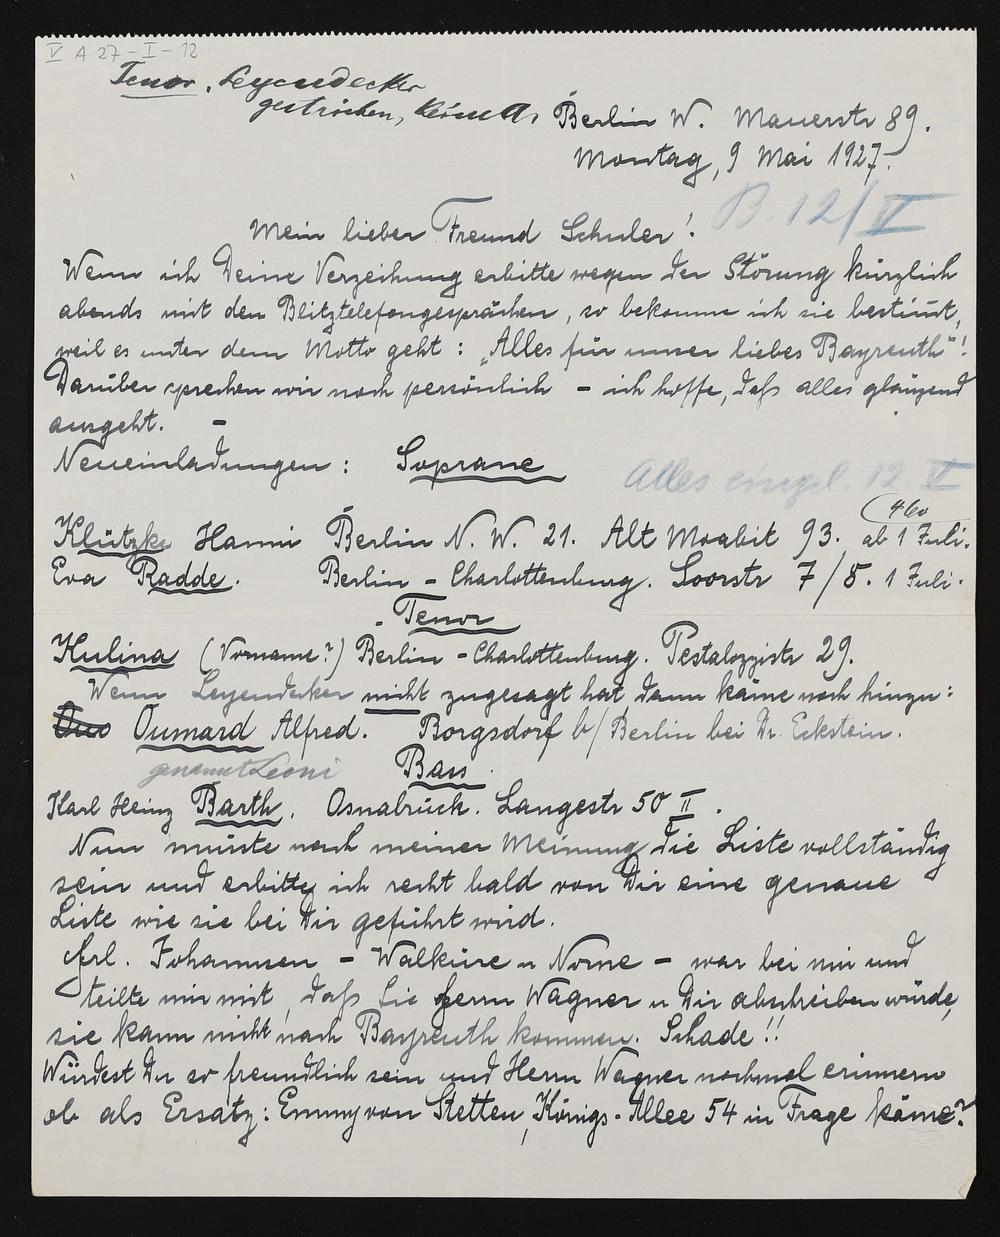 V A 27 - I - 12
Tenor, Leyendecker
gestrichen,
Berlin W. Mauerstr 89.
Montag, 9 Mai 1927.
B. 12/V
Mein lieber Freund Schuler!
Wenn ich Deine Verzeihung erbitte wegen der Störung kürzlich
abends mit den Blitztelefongesprächen, so bekomme ich sie bestimt,
weil es unter dem Motto geht: „Alles für unser liebes Bayreuth"!
Darüber sprechen wir noch persönlich - ich hoffe, daß alles glänzend
ausgeht. -
Neueinladungen: Soprane
Alles eingel. 12. V
(460
Klützke Hanni Berlin N.W. 21. Alt Moabit 93. ab 1 Juli.
Eva Radde. Berlin - Charlottenburg. Soorstr 7/8. 1 Juli.
Tenor
Kulina (Vorname?) Berlin - Charlottenburg. Pestalozzistr 29.
Wenn Leyendecker nicht zugesagt hat, dann käme noch hinzu:
Oumard Alfred. Borgsdorf b/Berlin bei Dr. Eckstein.
genannt Leoni
Bass.
Karl Heinz Barth. Osnabrück. Langestr 50 II.
Nun müsste nach meiner Meinung die Liste vollständig
sein und erbitte ich recht bald von Dir eine genaue
Liste wie sie bei Dir geführt wird.
Frl. Johannsen - Walküre u Norne - war bei mir und
teilte mir mit, daß sie Herrn Wagner u Dir abschreiben würde,
sie kann nicht nach Bayreuth kommen. Schade!!
Würdest Du so freundlich sein und Herrn Wagner nochmal erinnern
ob als Ersatz: Emmy von Stetten, Königs-Allee 54 in Frage käme?